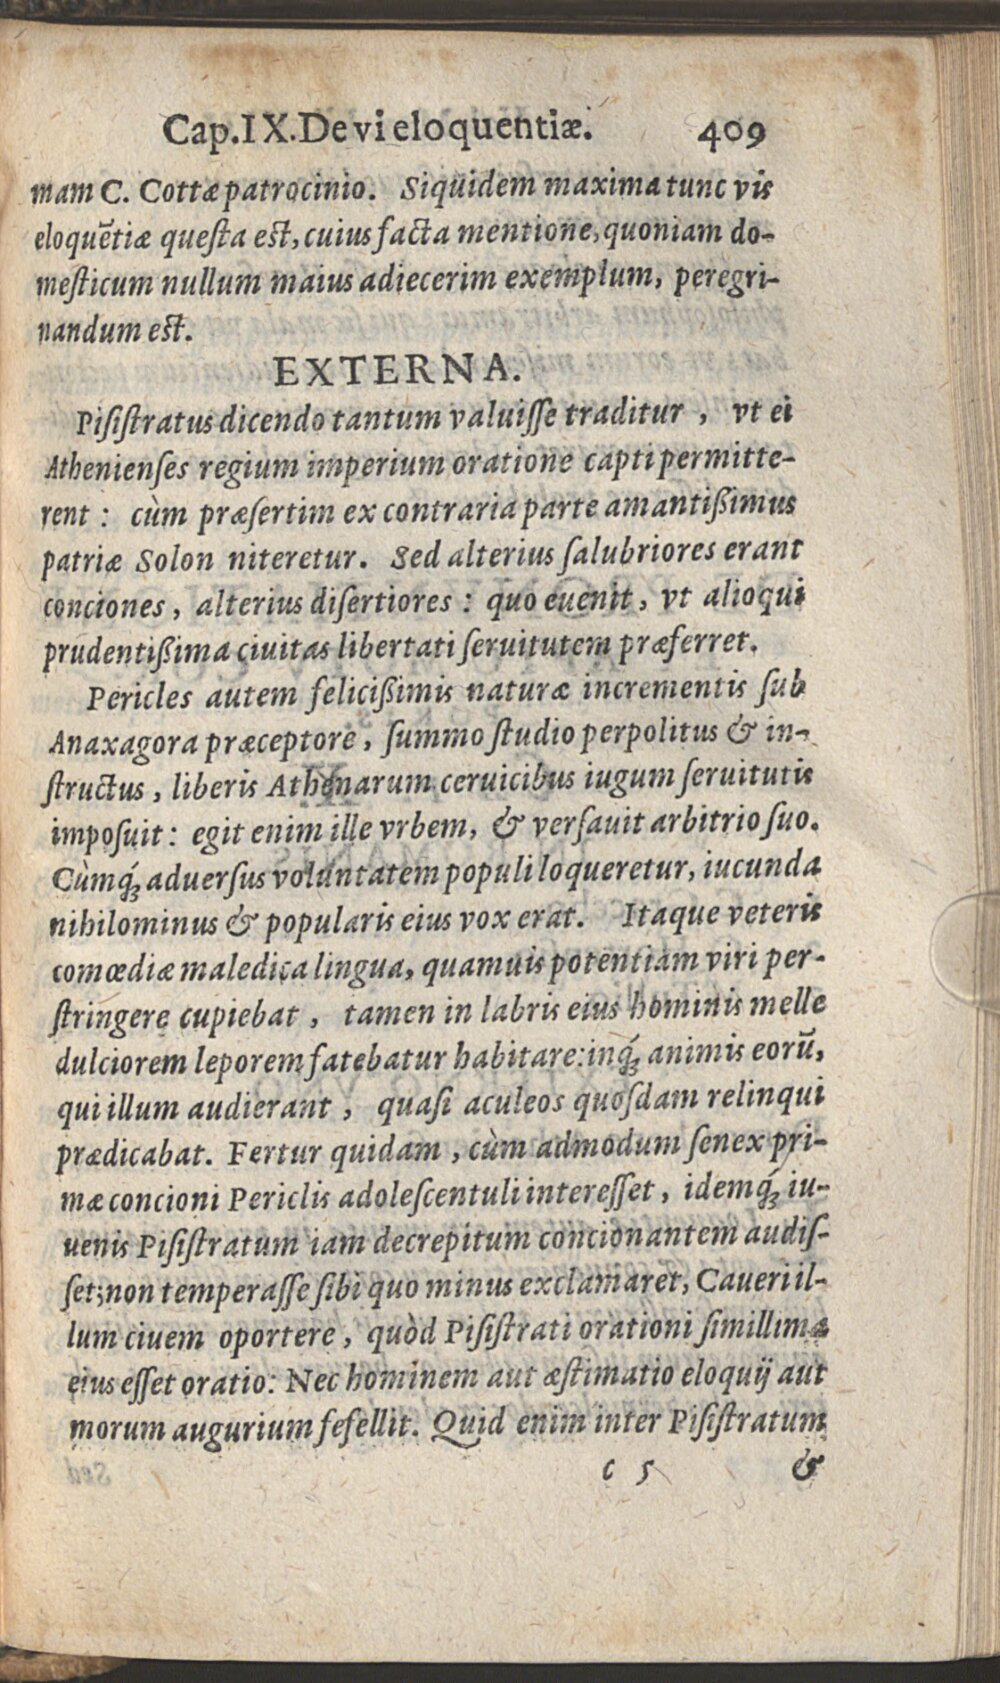 Cap.IX.De vi eloquentiæ. 409
mam C. Cottæ patrocinio. Siquidem maxima tunc vis
eloquẽtiæ questa est, cuius facta mentione, quoniam do-
mesticum nullum maius adiecerim exemplum, peregri-
nandum est.
EXTERNA.
Pisistratus dicendo tantum valuisse traditur, vt ei
Athenienses regium imperium oratione capti permitte-
rent: cùm præsertim ex contraria parte amantißimus
patriæ Solon niteretur. Sed alterius salubriores erant
conciones, alterius disertiores: quo euenit, vt alioqui
prudentißima ciuitas libertati seruitutem præferret.
Pericles autem felicißimis naturæ incrementis sub
Anaxagora præceptore, summo studio perpolitus & in-
structus, liberis Athenarum ceruicibus iugum seruitutis
imposuit: egit enim ille vrbem, & versauit arbitrio suo.
Cùmq́ꝫ aduersus voluntatem populi loqueretur, iucunda
nihilominus & popularis eius vox erat. Itaque veteris
comœdiæ maledica lingua, quamuis potentiam viri per-
stringere cupiebat, tamen in labris eius hominis melle
dulciorem leporem fatebatur habitare: inq́ꝫ animis eorũ,
qui illum audierant, quasi aculeos quosdam relinqui
prædicabat. Fertur quidam, cùm admodum senex pri-
mæ concioni Periclis adolescentuli interesset, idemq́ꝫ iu-
uenis Pisistratum iam decrepitum concionantem audis-
set; non temperasse sibi quo minus exclamaret, Caueri il-
lum ciuem oportere, quòd Pisistrati orationi simillima
eius esset oratio: Nec hominem aut æstimatio eloquij aut
morum augurium fefellit. Quid enim inter Pisistratum
c 5 &